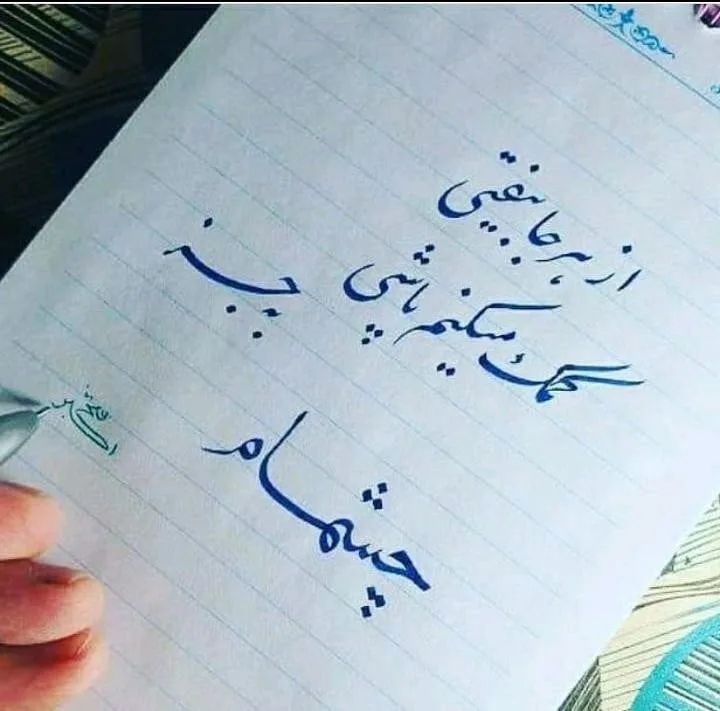 از هر جا بیفتی
کمک میکنم پاشی
به جز
چشمام